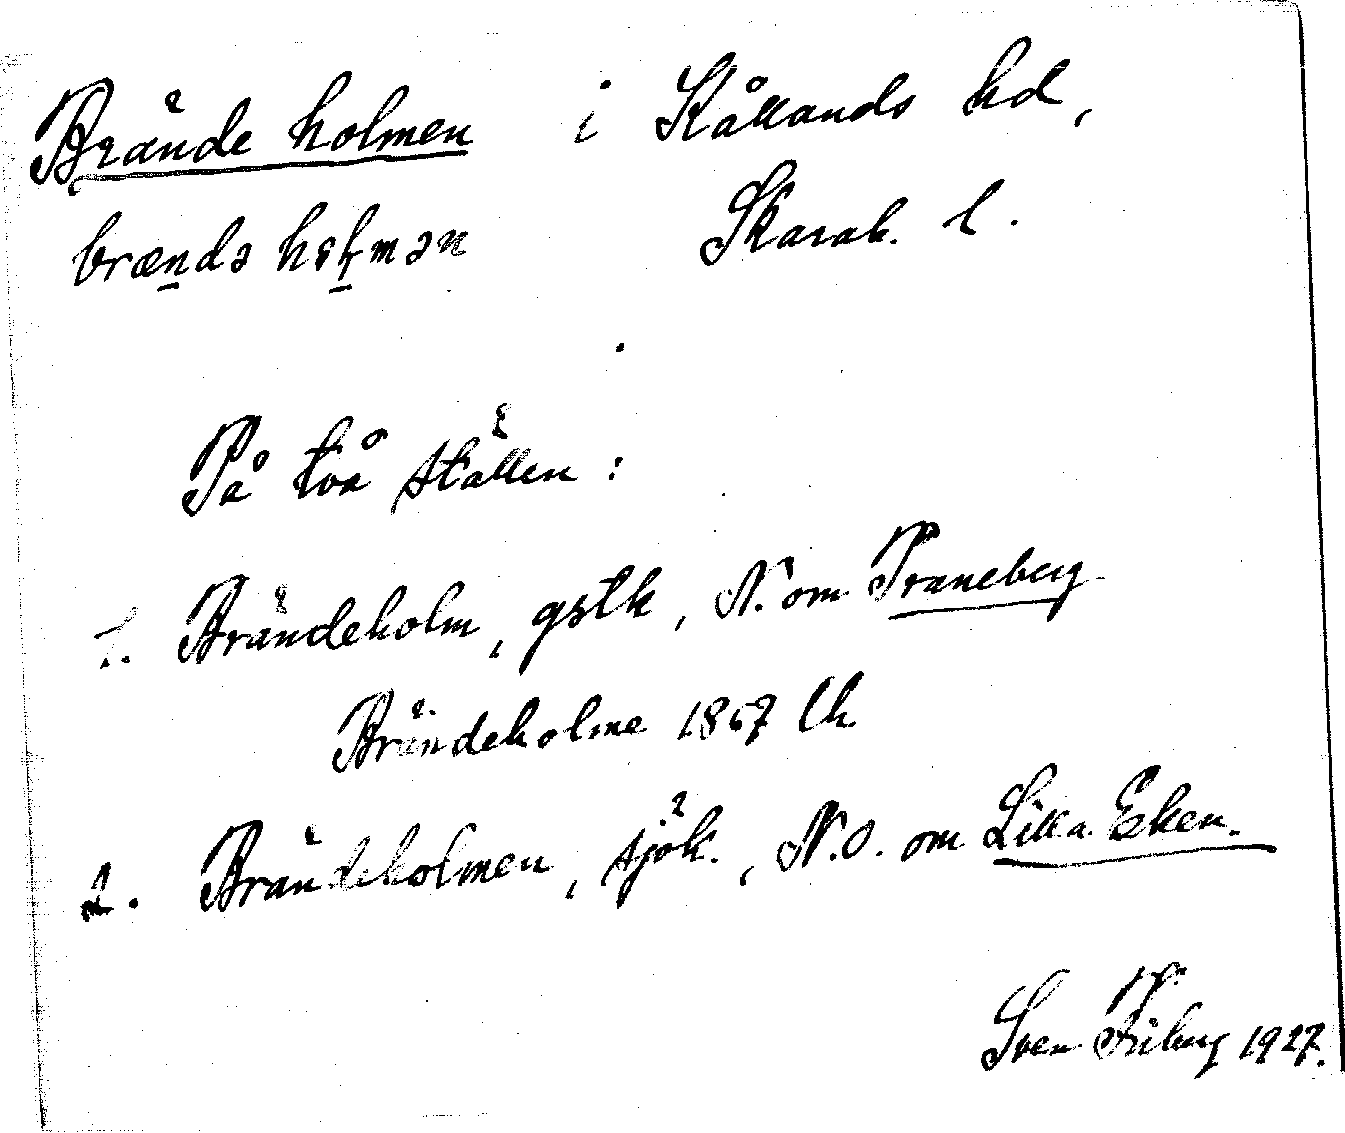 Brände holmen i Kållands hd,
brændə holmən Skarab. l.
På två ställen:
1. Brändeholm, gstk, N. om Traneberg
Brändeholme 1867 Ck
2. Brändeholmen, sjök., N.O. om Lilla Eken.
Sven Friberg 1927.